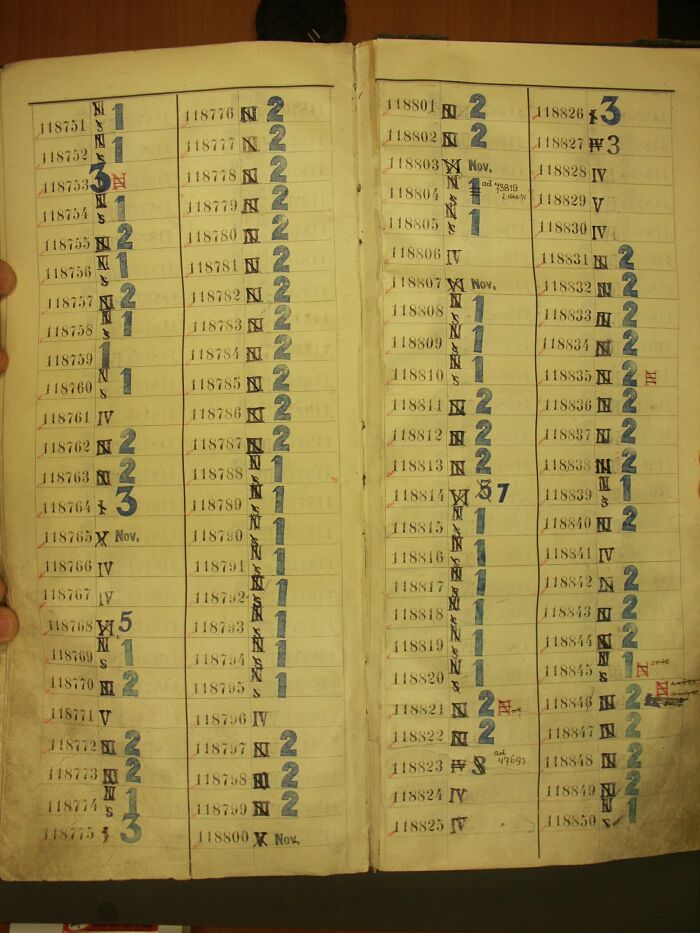 118751 N s 1
118752 N s 1
118753 3 N
118754 N s 1
118755 N 2
118756 N s 1
118757 N 2
118758 N s 1
118759 1
118760 N s 1
118761 IV
118762 N 2
118763 N 2
118764 3
118765 X Nov.
118766 IV
118767 IV
118768 XI 5
118769 N s 1
118770 N 2
118771 V
118772 N 2
118773 N 2
118774 N s 1
118775 3
118776 N 2
118777 N 2
118778 N 2
118779 N 2
118780 N 2
118781 N 2
118782 N 2
118783 N 2
118784 N 2
118785 N 2
118786 N 2
118787 N 2
118788 N s 1
118789 N s 1
118790 N s 1
118791 N s 1
118792 N s 1
118793 N s 1
118794 N s 1
118795 N s 1
118796 IV
118797 N 2
118798 N 2
118799 N 2
118800 X Nov.
118801 N 2
118802 N 2
118803 XI Nov.
118804 N s 1 ad 73819
118805 N s 1
118806 IV
118807 XI Nov.
118808 N s 1
118809 N s 1
118810 N s 1
118811 N 2
118812 N 2
118813 N 2
118814 XI 5 7
118815 N s 1
118816 N s 1
118817 N s 1
118818 N s 1
118819 N s 1
118820 N s 1
118821 N 2 N
118822 N 2
118823 IV 8 ad 47693
118824 IV
118825 IV
118826 3
118827 IV 3
118828 IV
118829 V
118830 IV
118831 N 2
118832 N 2
118833 N 2
118834 N 2
118835 N 2 N
118836 N 2
118837 N 2
118838 N 2
118839 N s 1
118840 N 2
118841 IV
118842 N 2
118843 N 2
118844 N 2
118845 N s 1 N
118846 N 2 N
118847 N 2
118848 N 2
118849 N 2
118850 N s 1